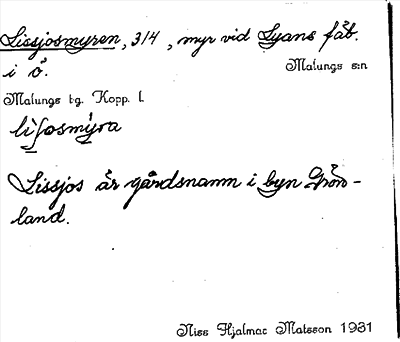 Lissjosmyren, 3/4, myr vid Lyans fäb.
i ö. Malungs s:n
Malungs tg. Kopp. l.
lìʃosmy�missing
Lissjos är gårdsnamn i byn Grön-
land.
Niss Hjalmar Matsson 1931